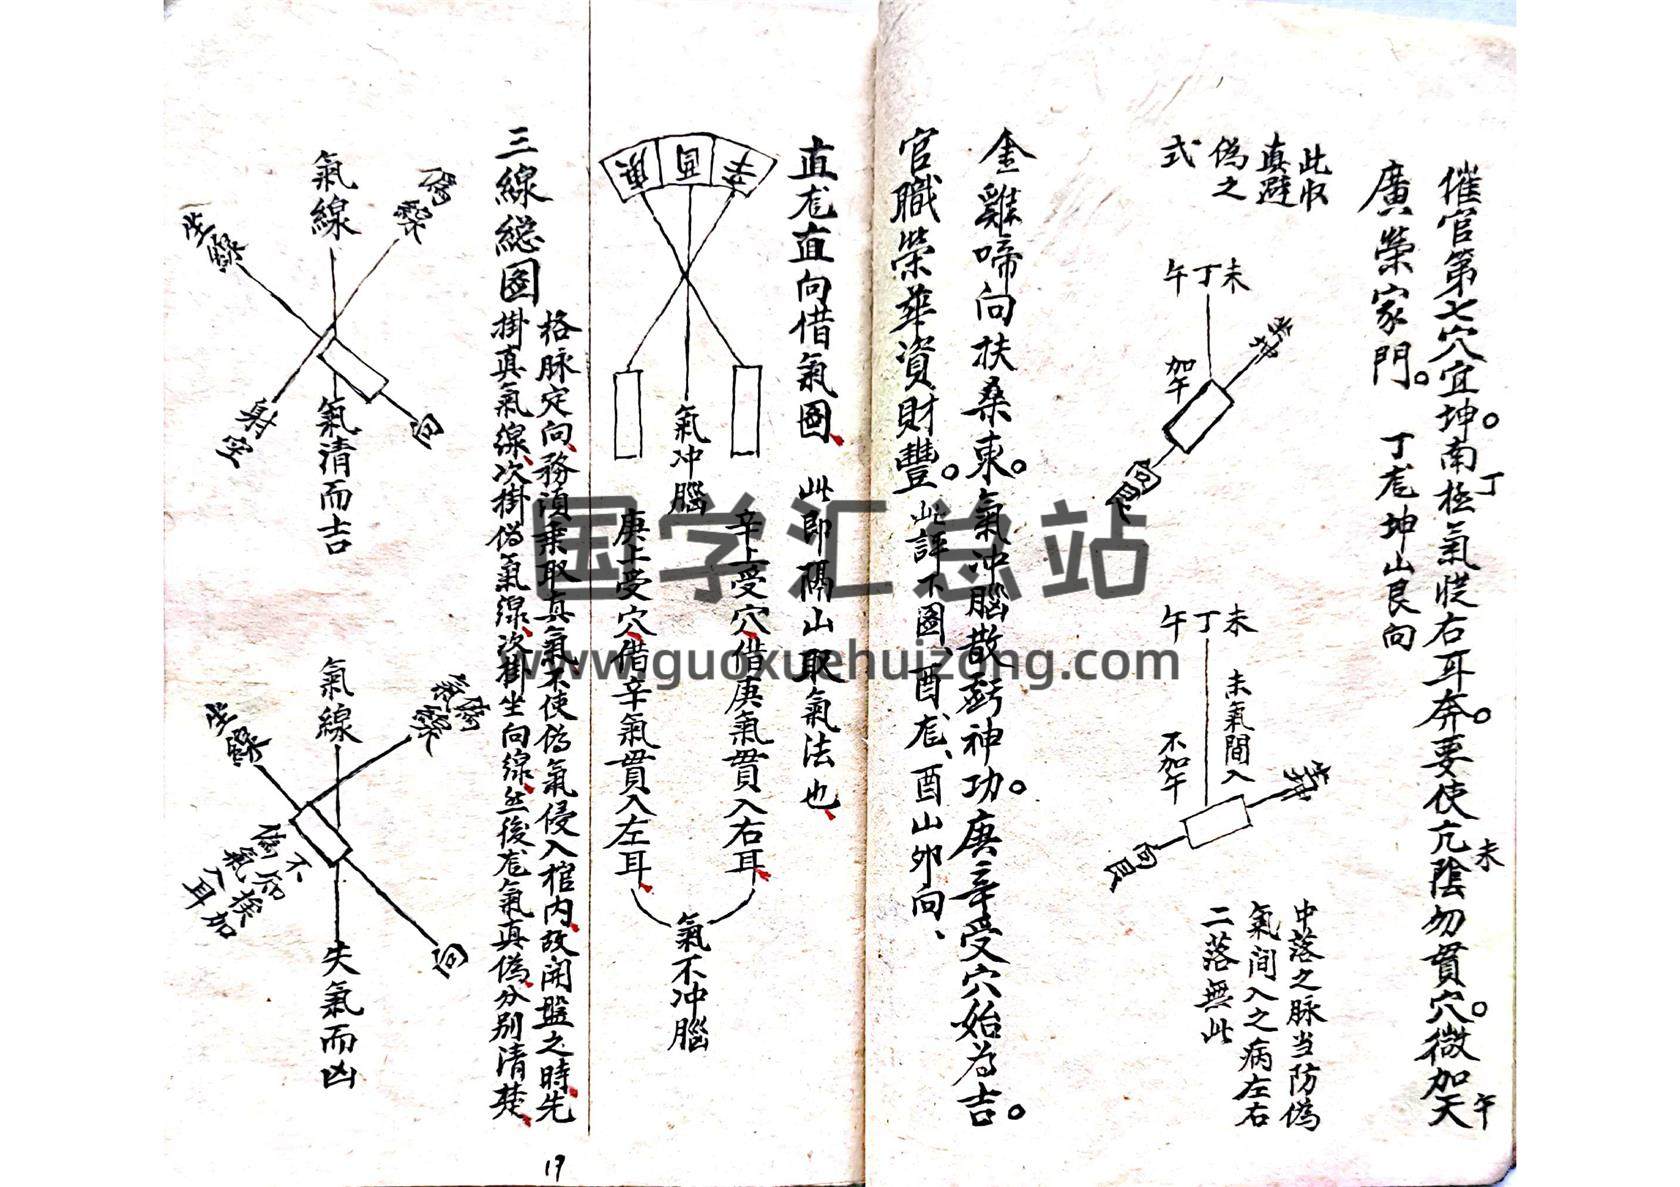 催官第七穴宜坤。南極氣從右耳奔。要使亢陰勿貫穴。微加天
丁
未
午
廣榮家門。
丁龙坤山艮向
此收
真避
偽之
式
午丁未
加午
坐坤
向艮
午丁未
未氣間入
不加午
坐坤
向艮
中落之脉当防偽
氣间入之病左右
二落無此
金雞啼向扶桑東。氣冲腦散虧神功。庚辛受穴始為吉。
官職榮華資財豐。
此評不圖、酉龙、酉山卯向、
直龙直向借氣圖、
此即隔山取氣法也、
氣冲腦
辛上受穴、借庚氣貫入右耳、
庚上受穴、借辛氣貫入左耳、
氣不冲腦
三線総圖
格脉定向、務須乘取真氣、不使偽氣侵入棺内、故開盤之時、先
掛真氣線、次掛偽氣線、次掛坐向線、然後龙氣真偽、分别清楚、
氣線
偽線
坐線
向
射空
氣清而吉
氣線
偽氣線
坐線
向
失氣而凶
17
国学汇总站
www.guoxuehuizong.com